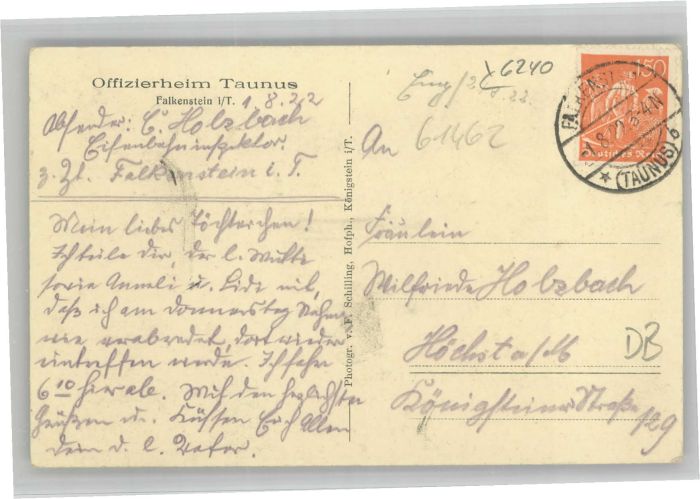 Offizierheim Taunus
Falkenstein i/T. 1.8.22
Absender: C. Holzbach
Eisenbahninspektor.
z. Zt. Falkenstein i. T.
Mein liebes Töchterchen!
Ich teile dir, der l. Mutti
sowie Anneli u. Lide mit,
daß ich am Donnerstag
wie verabredet, dort wieder
eintreffen werde. Ich fahre
6 10 hier ab. Mit den herzlichsten
Grüßen u. Küssen Euch Allen
Dein d. l. Vater.
Photogr. v. F. Schilling, Hofph., Königstein i/T.
6240
61462
An
Fräulein
Wilfriede Holzbach
Höchst a/M
Königsteiner Straße
129
DB
150
Deutsches Reich
(TAUNUS)